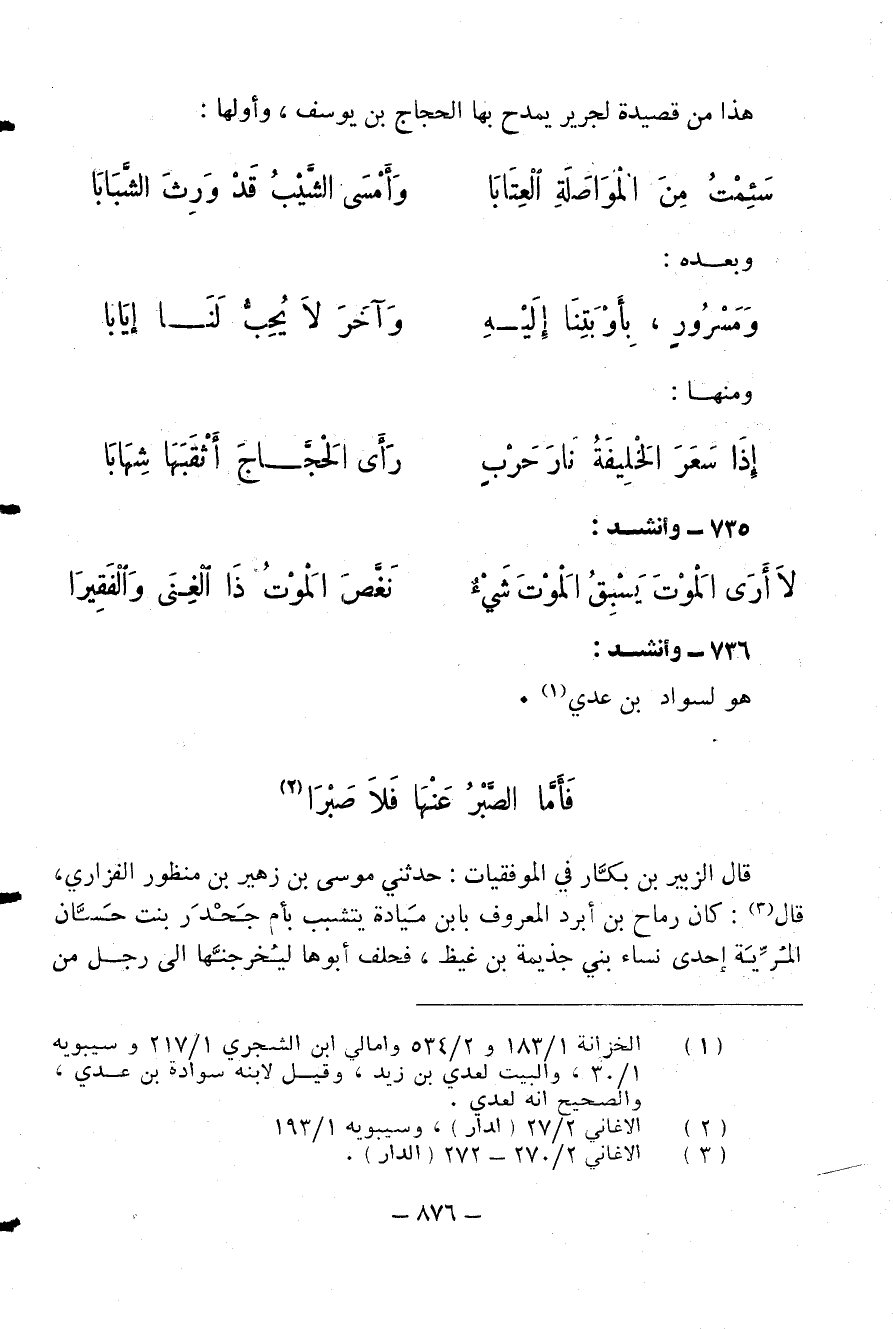 هذا من قصيدة لجرير يمدح بها الحجاج بن يوسف ، وأولها :
سَئِمْتُ مِنَ الْمُوَاصَلَةِ ٱلْعِتَابَا وَأَمْسَى الشَّيْبُ قَدْ وَرِثَ الشَّبَابَا
وبعـــده :
وَمَسْرُورٍ ، بِأَوْبَتِنَا إِلَيْـــهِ وَآخَرَ لاَ يُحِبُّ لَنَـــا إِيَابا
ومنهـــا :
إِذَا سَعَرَ الْخَلِيفَةُ نَارَ حَرْبٍ رَأَى الْحَجَّـــاجَ أَثْقَبَهَا شِهَابَا
٧٣٥ ــ وأنشــد :
لاَ أَرَى الْمَوْتَ يَسْبِقُ الْمَوْتَ شَيْءٌ نَغَّصَ الْمَوْتُ ذَا ٱلْغِنَى وَٱلْفَقِيرَا
٧٣٦ ــ وأنشــد :
هو لسواد بن عدي(١) .
فَأَمَّا الصَّبْرُ عَنْهَا فَلاَ صَبْرَا(٢)
قال الزبير بن بكـَّار في الموفقيات : حدثني موسى بن زهير بن منظور الفزاري،
قال(٣) : كان رماح بن أبرد المعروف بابن مـَيادة يتشبب بأم جـَحْدَر بنت حـَسـَّان
المُرِّيـَة إحدى نساء بني جذيمة بن غيظ ، فحلف أبوها ليـُخرجنـَّها الى رجــل من
(١) الخزانة ١٨٣/١ و ٥٣٤/٢ وامالي ابن الشجري ٢١٧/١ و سيبويه
٣٠/١ ، والبيت لعدي بن زيد ، وقيــل لابنه سوادة بن عــدي ،
والصحيح انه لعدي .
(٢) الاغاني ٢٧/٢ ( الدار ) ، وسيبويه ١٩٣/١
(٣) الاغاني ٢٧٠/٢ ــ ٢٧٢ ( الدار ) .
ــ ٨٧٦ ــ